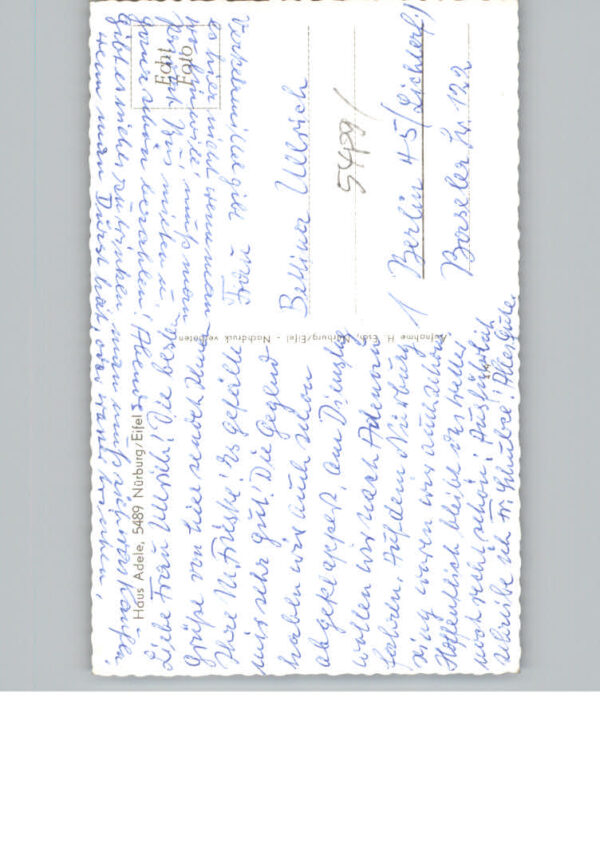 Haus Adele, 5489 Nürburg/Eifel
Liebe Frau Ullrich! Die besten
Grüße von hier sendet Ihnen
Ihre M. Es gefällt
mir sehr gut! Die Gegend
haben wir auch schon
abgeklappert, am Dienstag
wollen wir nach Adenau
fahren. Auf dem Nürburg
ring waren wir auch schon
Hoffentlich bleibt das Wetter
noch recht schön! Ausführlich
schreibe ich Fr. Schulze! Alles Gute!
Aufnahme H. Esch, Nürburg/Eifel - Nachdruck verboten
Echt
Foto
Frau
Bettina Ullrich
5489/
1 Berlin 45 (Lichterf.)
Baseler Str. 122
es hier nicht wenn man
muß man
schon bezahlen! Abends
gibt es nichts zu trinken man muß sich was kaufen,
wenn man Durst hat, oder trinken,